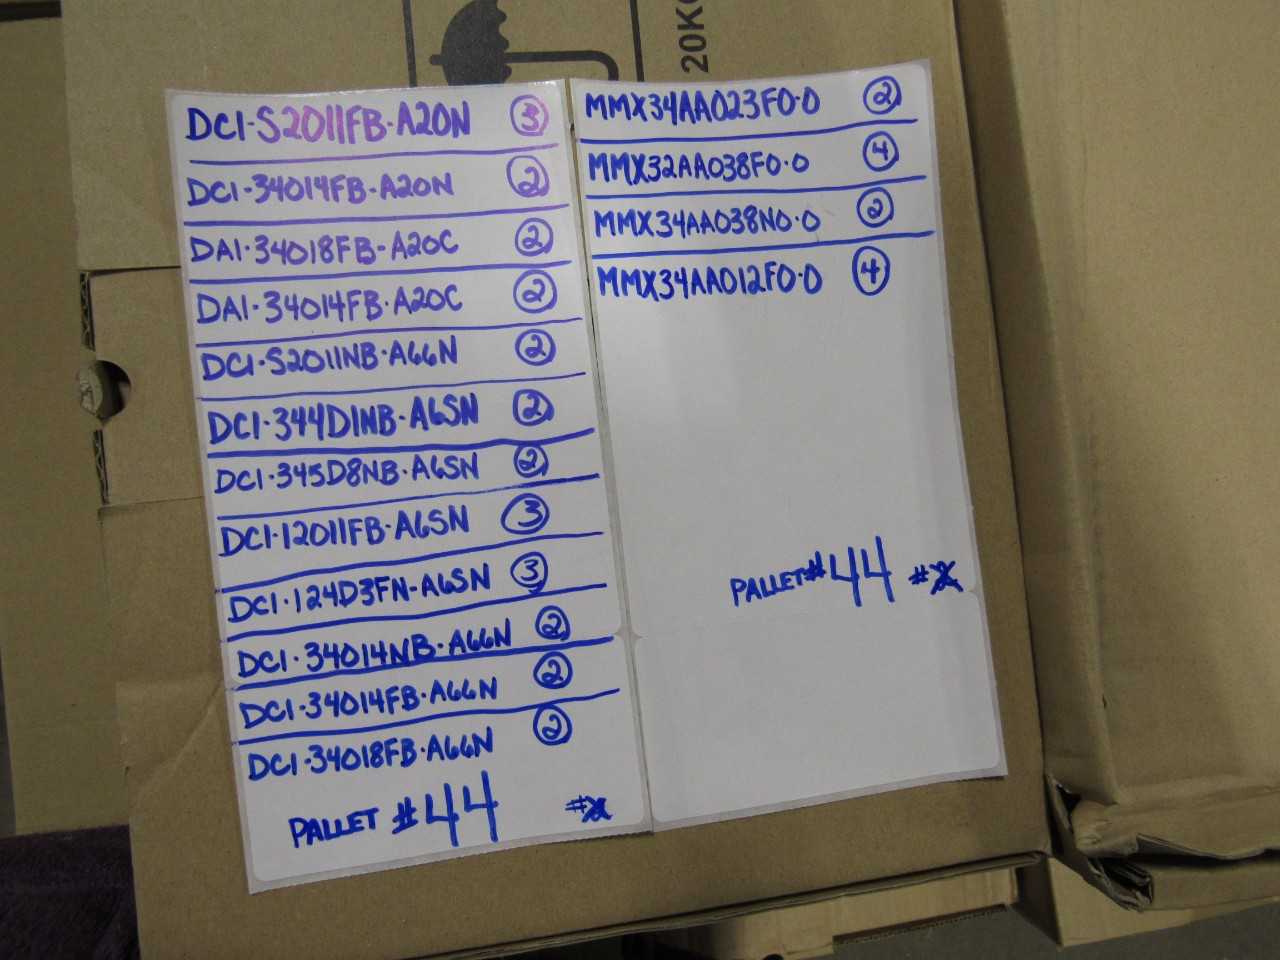 20KG
DC1-S2011FB-A20N 3
DC1-34014FB-A20N 2
DA1-34018FB-A20C 2
DA1-34014FB-A20C 2
DC1-S2011NB-A66N 2
DC1-344D1NB-A6SN 2
DC1-345D8NB-A6SN 2
DC1-12011FB-A6SN 3
DC1-124D3FN-A6SN 3
DC1-34014NB-A66N 2
DC1-34014FB-A66N 2
DC1-34018FB-A66N 2
PALLET #44
MMX34AA023F0-0 2
MMX32AA038F0-0 4
MMX34AA038N0-0 2
MMX34AA012F0-0 4
PALLET #44